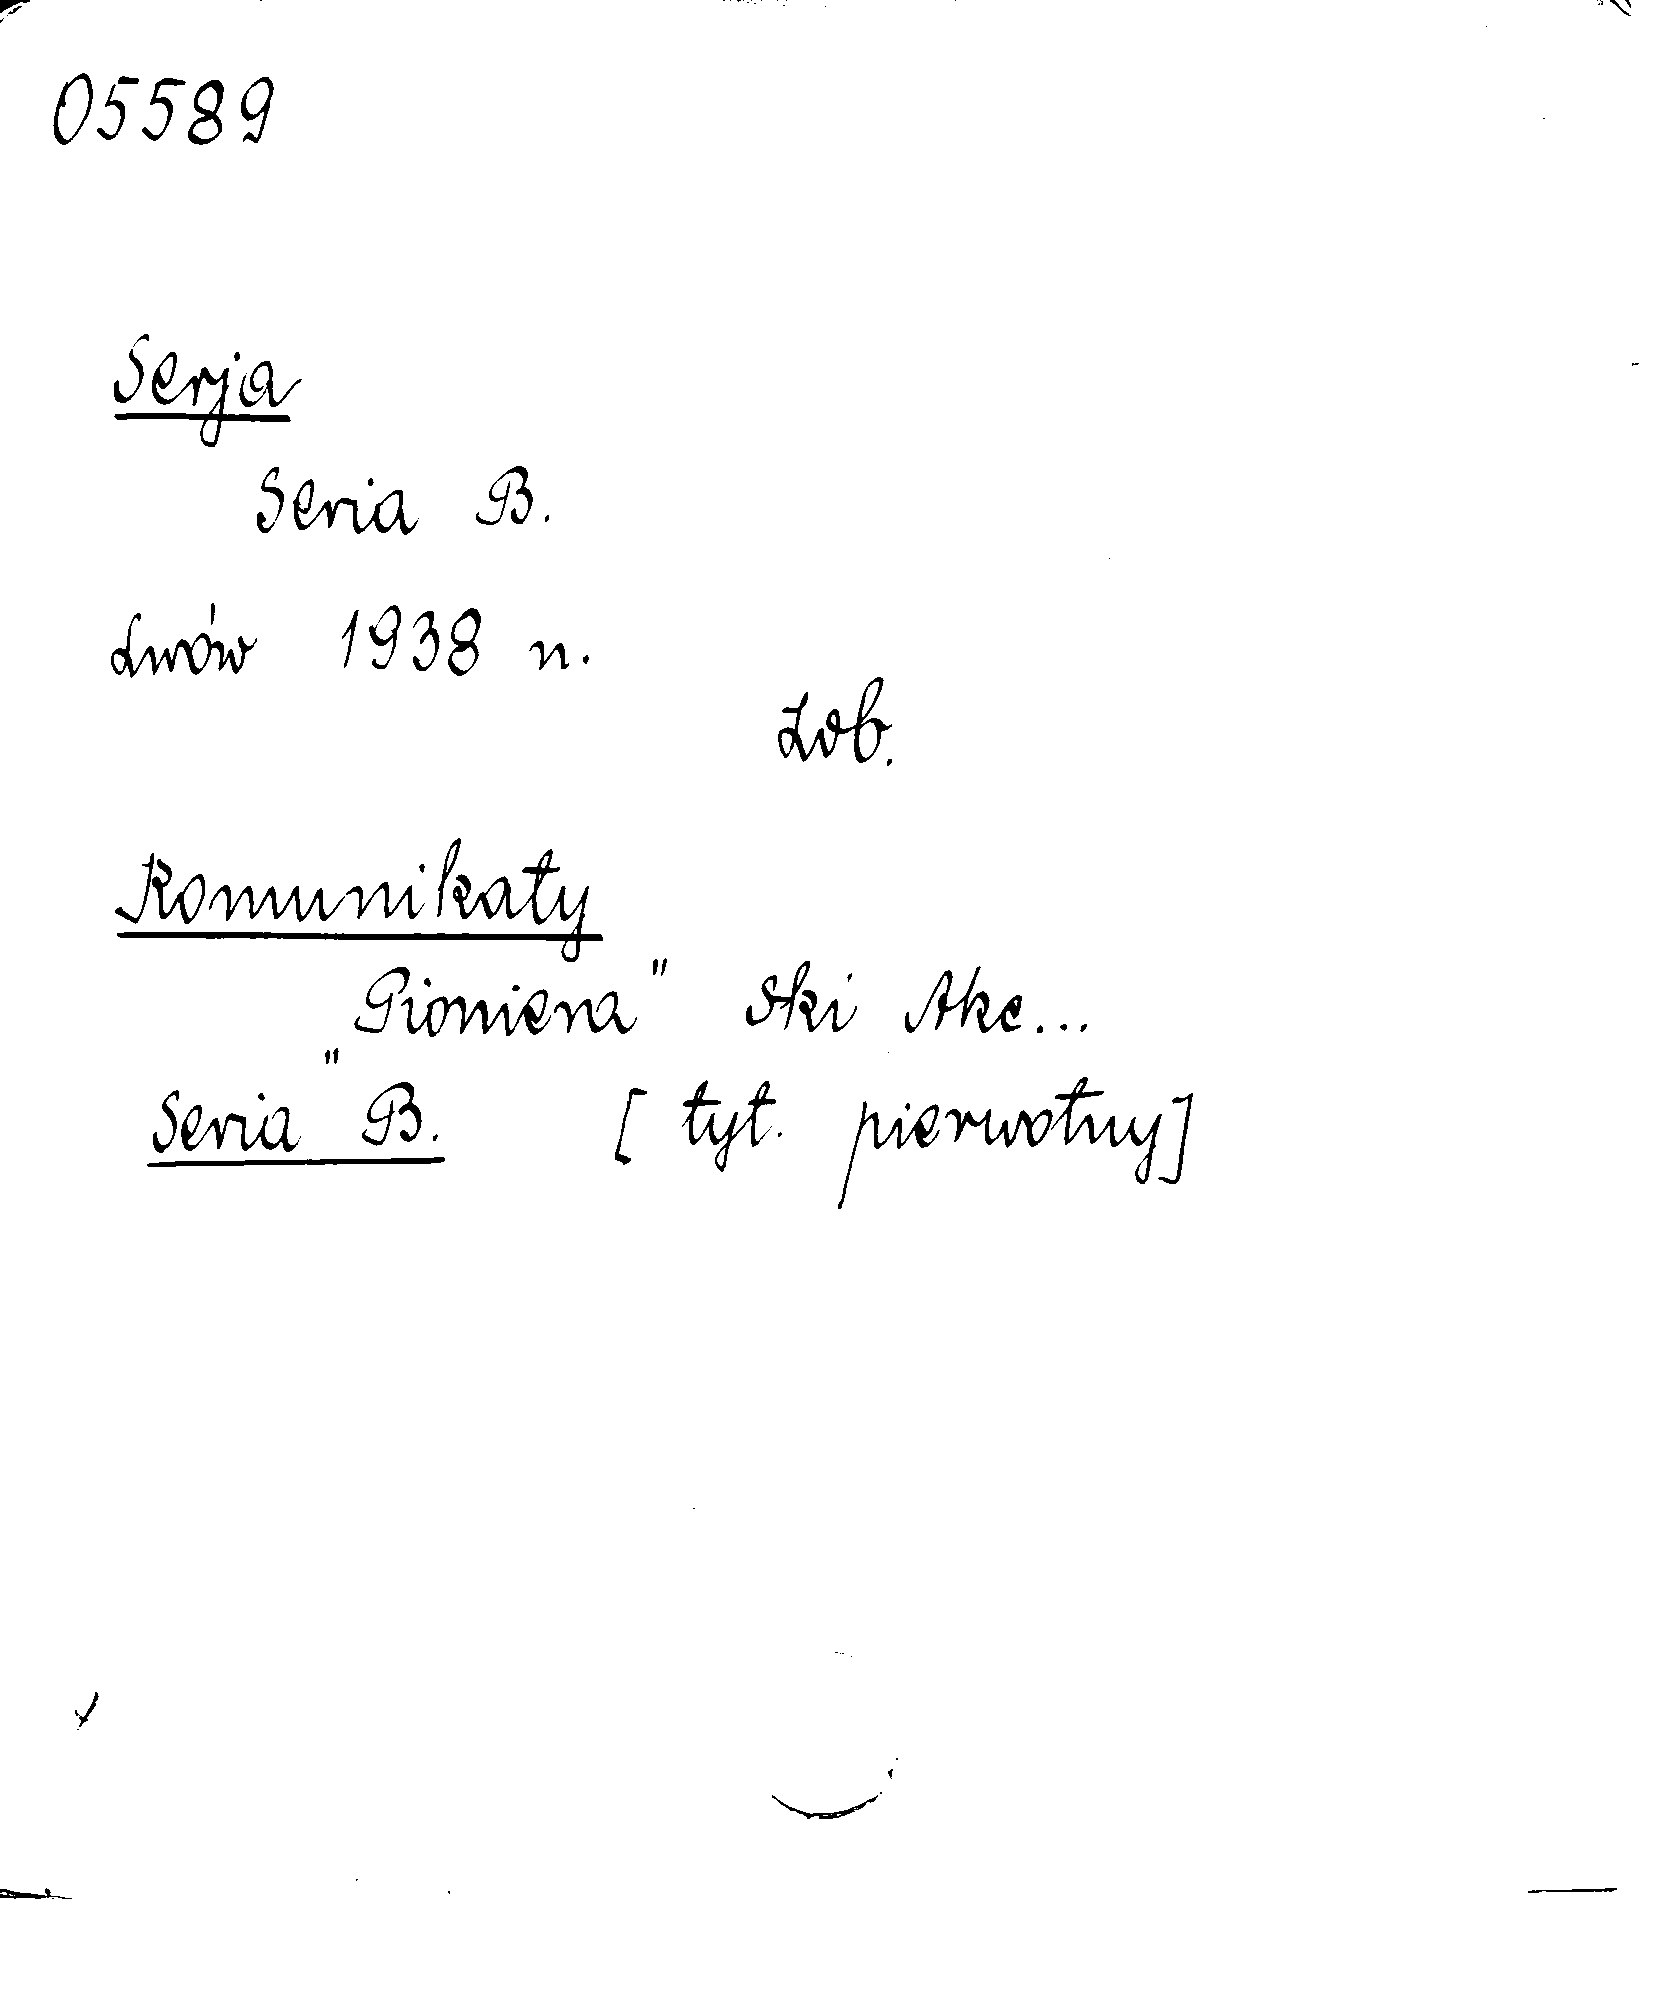 05589
Serja
Seria B.
Lwów 1938 n.
Zob.
Komunikaty
"Pioniera" Ski Akc...
Seria B. [tyt. pierwotny]